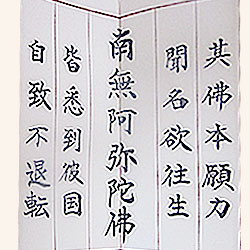 其佛本願力
聞名欲往生
南無阿弥陀佛
皆悉到彼国
自致不退転